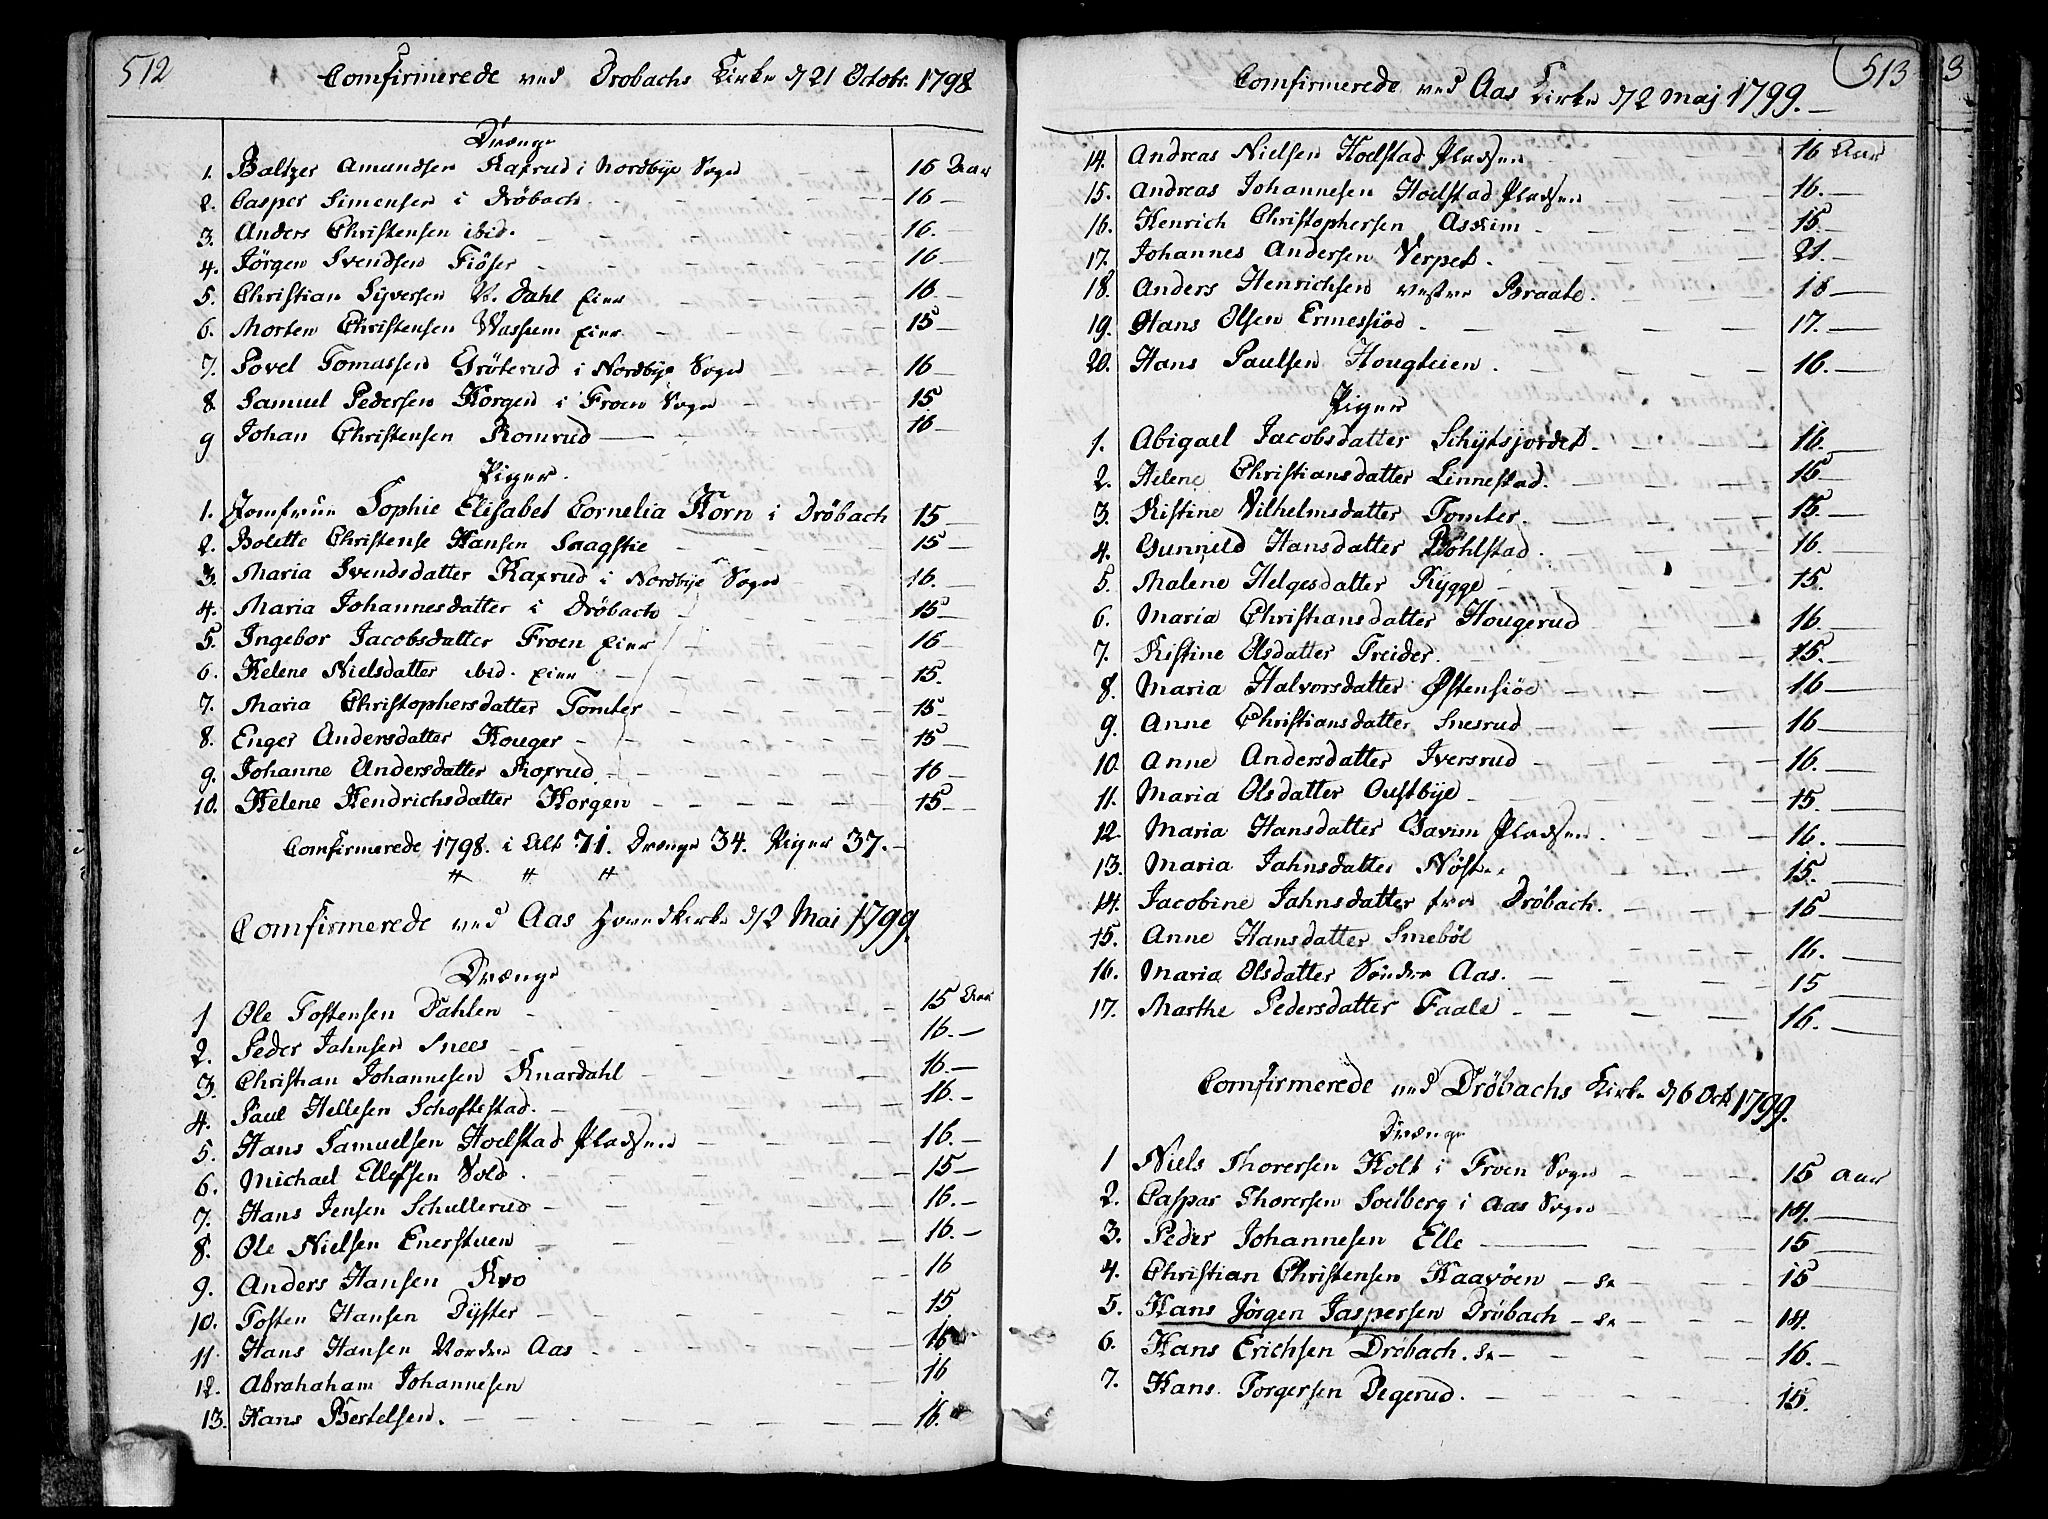 512
Comfirmerede ved Drøbachs Kirke d 21 Octobr. 1798
Drænge
1. Baltzer Amundsen Raxrud i Nordbÿe Sogn 16 Aar
2. Casper Simensen i Drøbach 16
3. Anders Christensen ibid. 16.
4. Jørgen Svendsen Fiøser 16
5. Christian Sÿversen N. Dahl Eier 16.
6. Morten Christensen Wassum Eier 15
7. Povel Tomassen Grøterud i Nordbÿe Sogn 16
8 Samuel Pedersen Korgen i Froen Sogn 15
9 Johan Christensen Romrud 16
Piger.
1. Jomfrue Sophie Elisabet Cornelia Korn i Drøbach 15
2. Bolette Christense Hansen Snagstie 15
3. Maria Svendsdatter Raxrud i Nordbÿe Sogn 16.
4. Maria Johannesdatter i Drøbach 15
5. Ingebor Jacobsdatter Froen Eier 16
6. Helene Nielsdatter ibid. Eier 15.
7. Maria Christophersdatter Tomter 15
8. Enger Andersdatter Houger 15
9. Johanne Andersdatter Roxrud 16
10. Helene Hendrichsdatter Korgen 15
Comfirmerede 1798. i Alt 71. Drænge 34. Piger 37.
Comfirmerede ved Aas Hovedkirke d 2 Mai 1799.
Drænge
1 Ole Tostensen Dahlen 15 Aar
2. Peder Jahnsen Snees 16.
3. Christian Johannesen Knardahl 16.
4. Paul Hellesen Schoftestad. 16.
5. Hans Samuelsen Hoelstad Pladsen 16.
6. Michael Ellefsen Vold. 15
7. Hans Jensen Schullerud 16.
8. Ole Nielsen Enerstuen 16.
9. Anders Hansen Kro 16
10. Tosten Hansen Dÿster 15
11. Hans Hansen Norder Aas 16
12. Abrahaham Johannesen 16
13. Hans Bertelsen. 16.
513
3
Comfirmerede ved Aas Kirke d 2 Maj 1799.
14. Andreas Nielsen Hoelstad Pladsen 16 Aar
15. Andreas Johannesen Hoelstad Pladsen 16.
16. Henrich Christophersen Askim 15.
17. Johannes Andersen Verpet. 21.
18. Anders Henrichsen vestre Braate. 18
19. Hans Olsen Ermessiød. 17.
20. Hans Paulsen Hougteien. 16.
Piger
1. Abigael Jacobsdatter Schÿtsjordet. 16.
2. Helene Christiansdatter Linnestad. 15
3. Kistine Vilhelmsdatter Tomter. 15
4. Gunnild Hansdatter Bøhlstad. 16.
5. Malene Helgesdatter Rÿgge 15.
6. Maria Christiansdatter Hougerud 16
7. Kistine Olsdatter Treider. 15.
8. Maria Halvorsdatter Østensiøe 16
9. Anne Christiansdatter Snesrud 16
10. Anne Andersdatter Iversrud 16.
11. Maria Olsdatter Oustbÿe 15.
12. Maria Hansdatter Gavim Pladsen. 16.
13. Maria Jahnsdatter Nøst 15.
14. Jacobine Jahnsdatter fra Drøbach. 15
15. Anne Hansdatter Smebøl 16.
16. Maria Olsdatter Søndre Aas. 15
17. Marthe Pedersdatter Faale 16.
Comfirmerede ved Drøbachs Kirke d 6 Oct 1799.
Drænge
1 Niels Thorersen Holt i Froen Sogn 15 Aar
2. Caspar Thorersen Soelberg i Aas Sogn 14.
3. Peder Johannesen Elle 15
4. Christian Christensen Haavøen 15
5. Hans Jørgen Jaspersen Drøbach 14.
6. Hans Erichsen Drøbach. 16.
7. Hans Torgersen Degerud. 15.